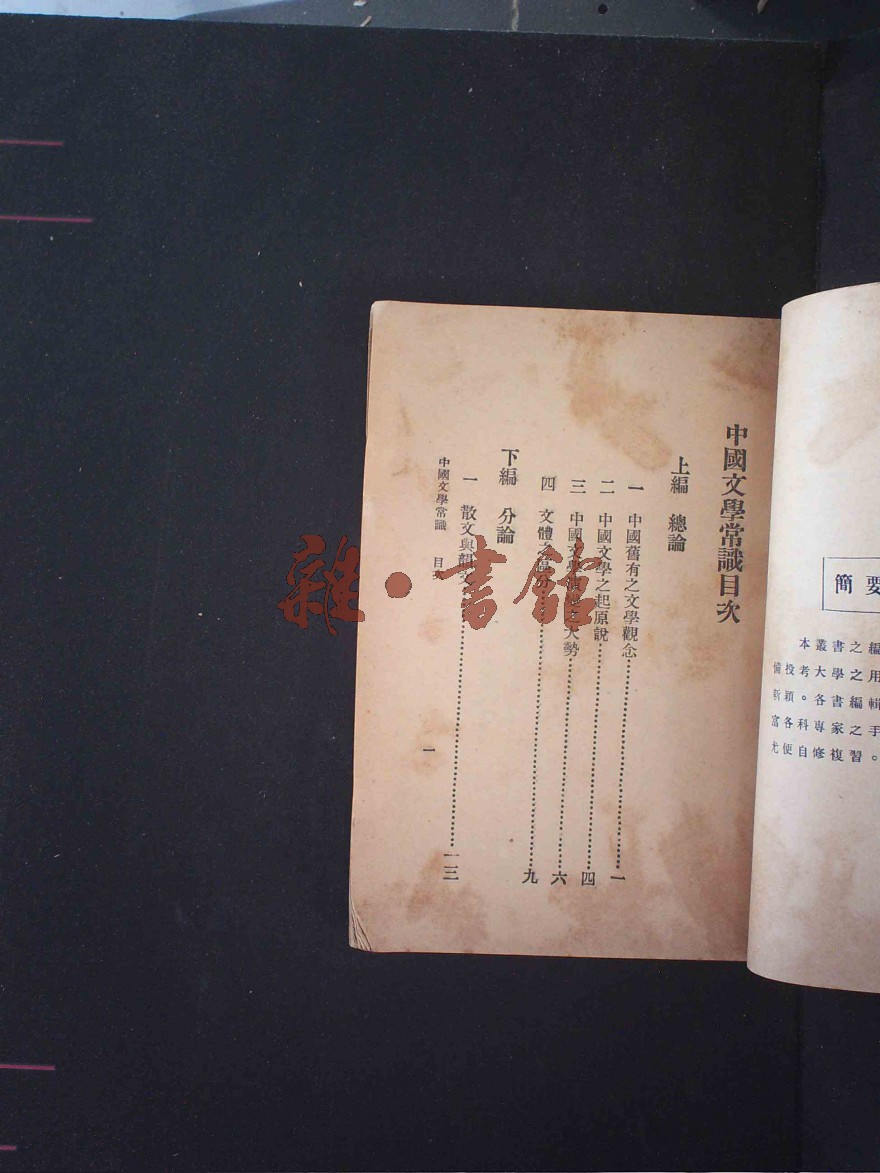 中國文學常識目次
上編　總論
一　中國舊有之文學觀念……一
二　中國文學之起原說……四
三　中國文學　大勢……六
四　文體之區分……九
下編　分論
一　散文與韻文……一三
中國文學常識　目次
一
簡要
本叢書之編
備投考大學之用
新穎。各書編輯
富各科專家之手
尤便自修複習。
雜·書館